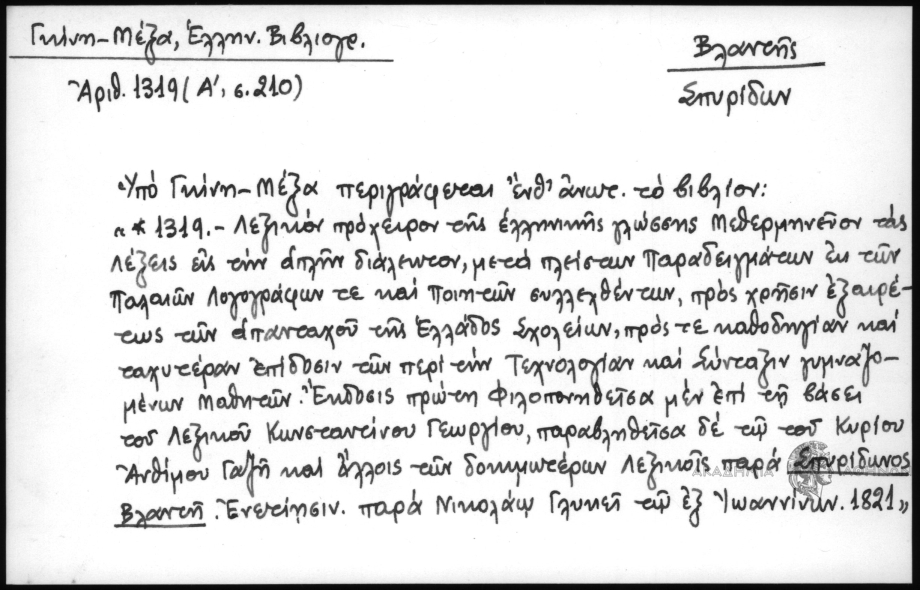 Γκίνη-Μέζα, Ἑλλην. Βιβλιογρ.
Ἀριθ. 1319 (Α', σ. 210)
Βλαντῆς
Σπυρίδων
Ὑπό Γκίνη-Μέζα περιγράφεται ἔνθ' ἄνωτ. τό βιβλίον:
«* 1319.- Λεξικόν πρόχειρον τῆς ἑλληνικῆς γλώσσης Μεθερμηνεῦον τάς
Λέξεις εἰς τήν ἁπλῆν διάλεκτον, μετά πλείστων Παραδειγμάτων ἐκ τῶν
Παλαιῶν Λογογράφων τε καί Ποιητῶν συλλεχθέντων, πρός χρῆσιν ἐξαιρέ-
τως τῶν ἁπανταχοῦ τῆς Ἑλλάδος Σχολείων, πρός τε καθοδηγίαν καί
ταχυτέραν ἐπίδοσιν τῶν περί τήν Τεχνολογίαν καί Σύνταξιν γυμναζο-
μένων Μαθητῶν. Ἔκδοσις πρώτη Φιλοπονηθεῖσα μέν ἐπί τῇ βάσει
τοῦ Λεξικοῦ Κωνσταντίνου Γεωργίου, παραβληθεῖσα δέ τῷ τοῦ Κυρίου
Ἀνθίμου Γαζῆ καί ἄλλοις τῶν δοκιμωτέρων Λεξικοῖς παρά Σπυρίδωνος
Βλαντῆ. Ἐνετίησιν. παρά Νικολάῳ Γλυκεῖ τῷ ἐξ Ἰωαννίνων. 1821»